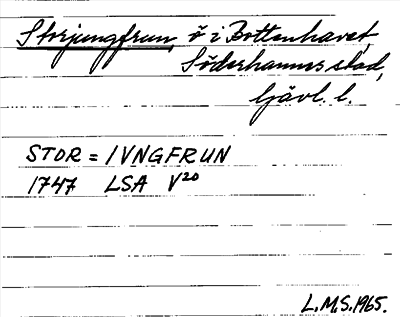 Storjungfrun, ö i Bottenhavet,
Söderhamns stad,
Gävl. l.
STOR = IVNGFRUN
1747 LSA V20
L.M.S. 1965.